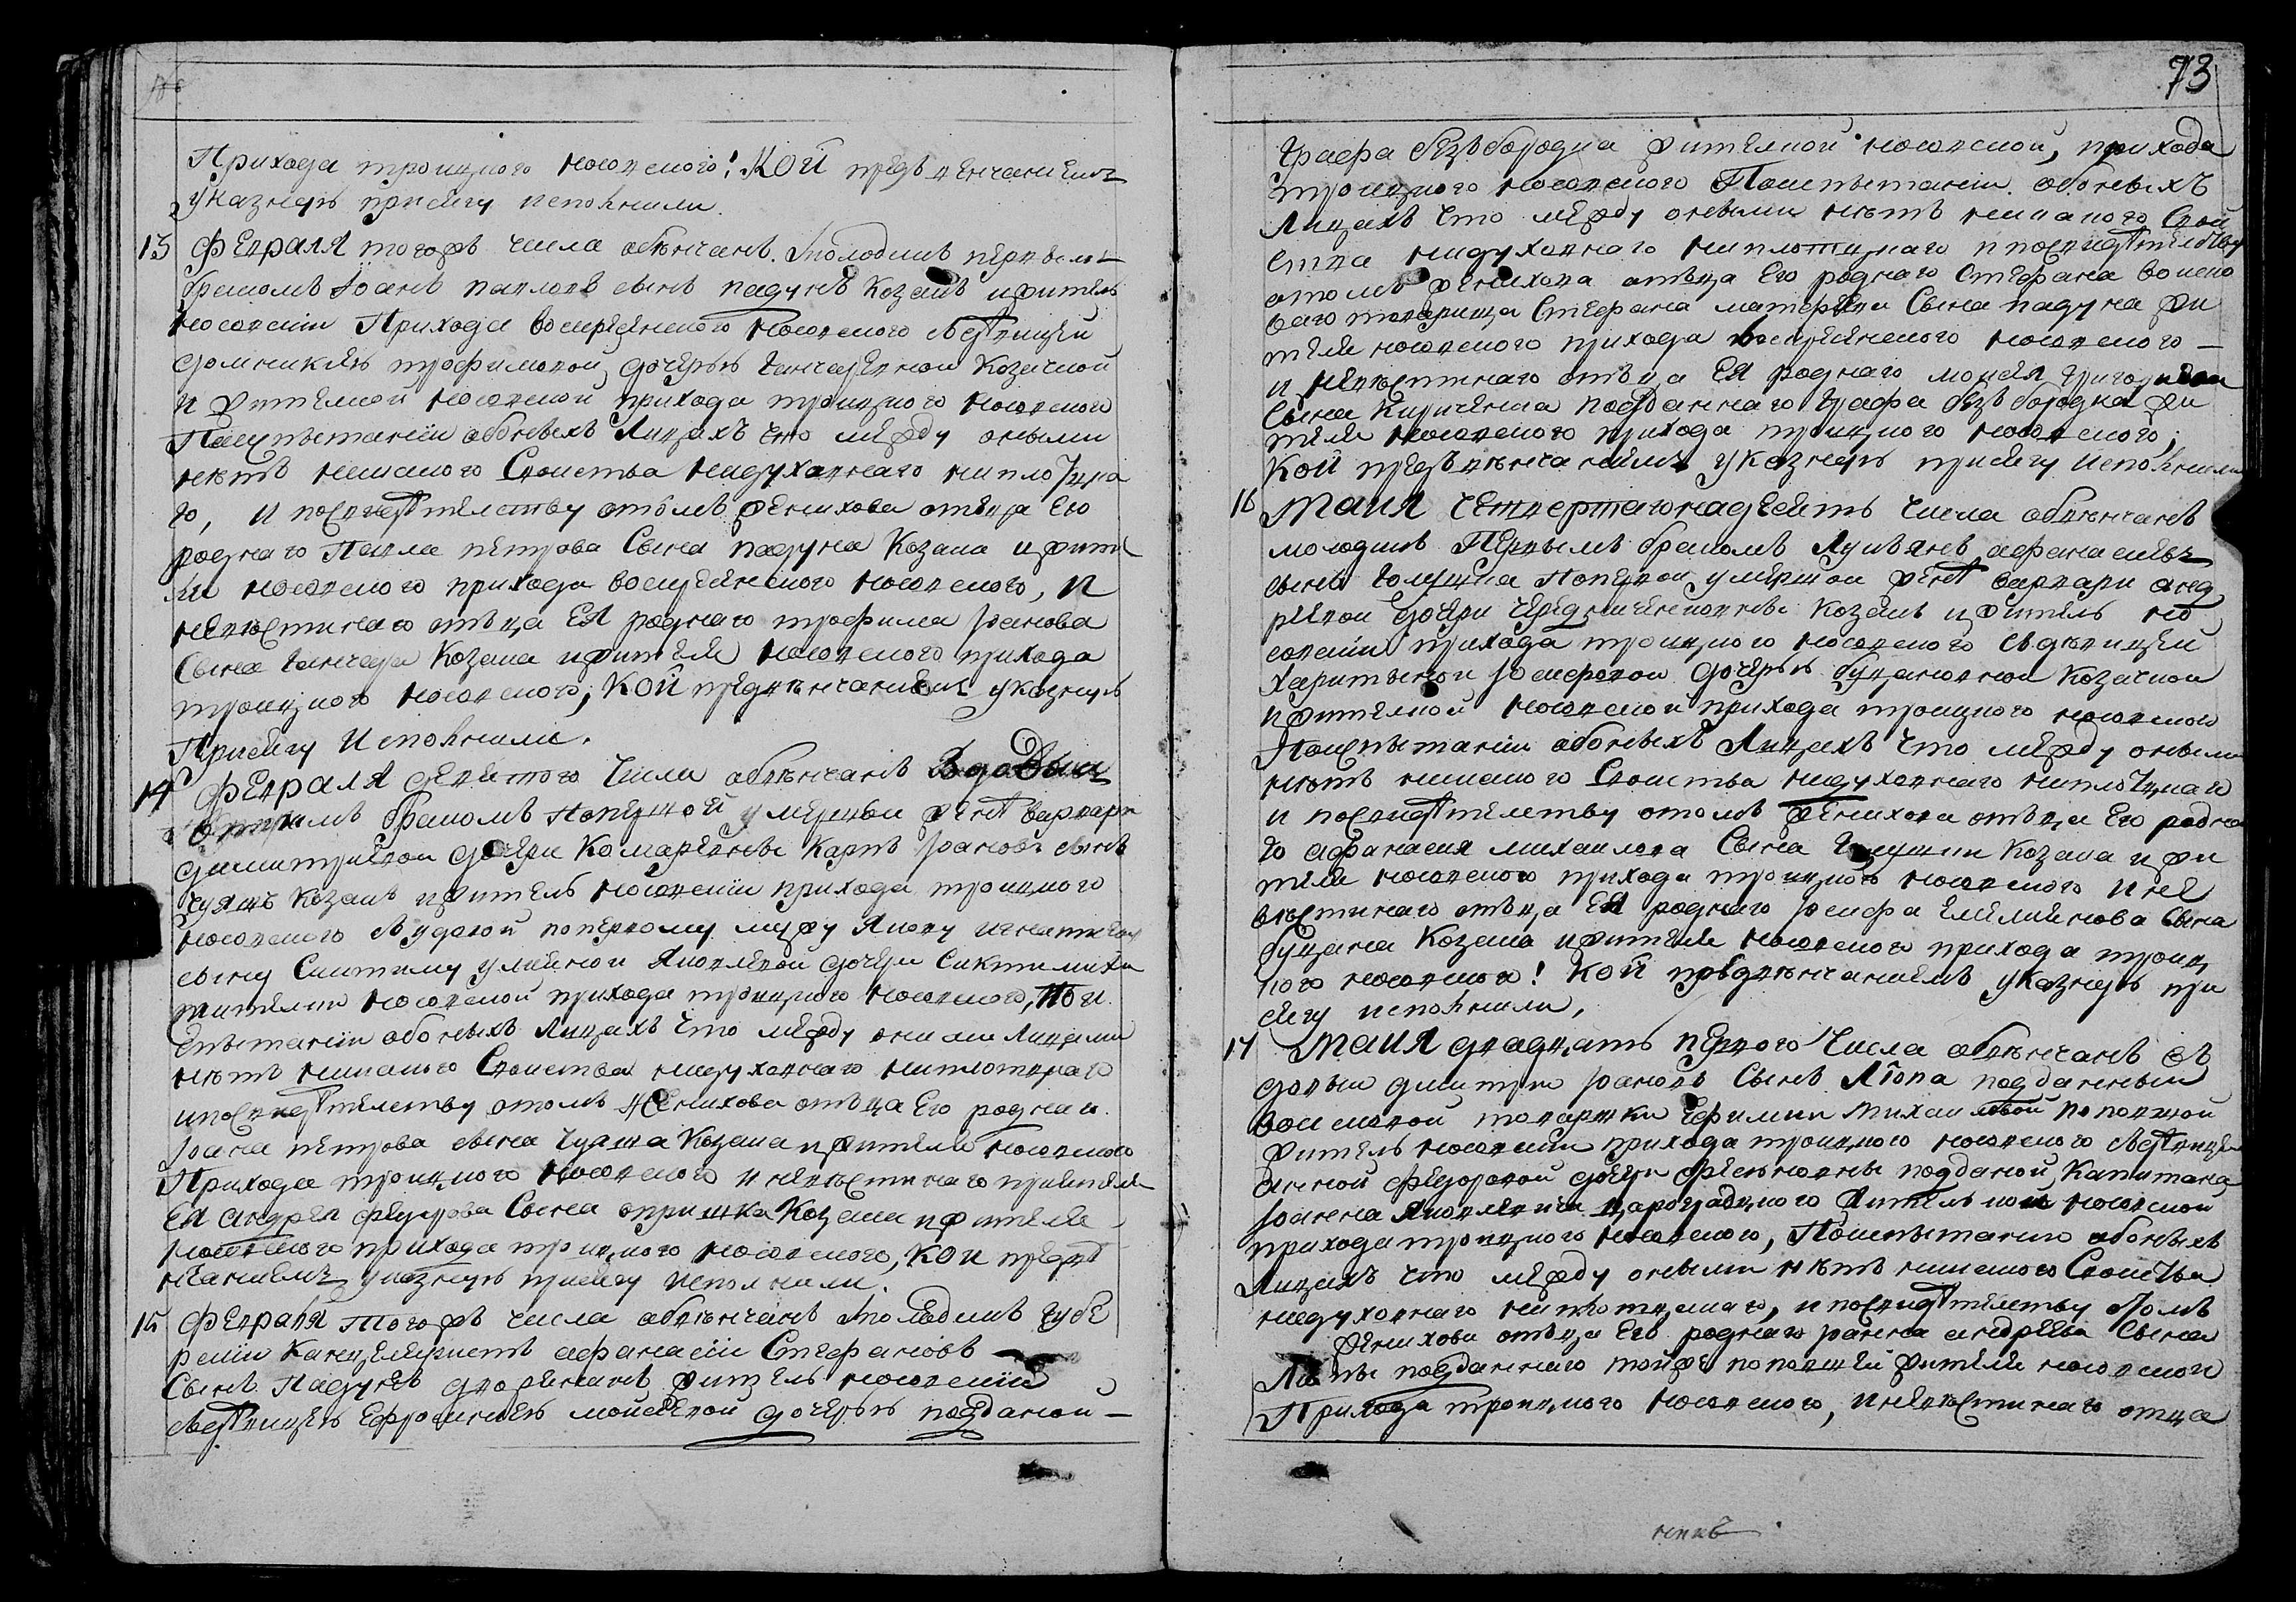 Прихода троицкого носовского! Кой предъ венчаниемъ
указную присягу исполнили.
13 Февраля того жъ числа обвѣнчанъ молодикъ первымъ
бракомъ Іоанъ павловъ сынъ падунъ Козакъ и житель
носовскій Прихода воскресенского носовского зъ дѣвицей
домникіею трофимовой дочерью ганчаревною Козачкой
и жителкой носовской прихода троицкого носовского
По испытаніи обоихъ Лицахъ что между оными
нѣтъ никакого Свойства ни духовнаго ни плотцка
го, и по свидѣтелству о томъ женихова отъца Его
роднаго Павла петрова Сына падуна Козака и жите
ля носовского прихода воскресенского носовского, и
невѣстинаго отъца Ея роднаго трофима іоанова
Сына ганчара Козака и жителя носовского прихода
троицкого носовского, Кой предвѣнчаниемъ указную
Присягу Исполнили.
14 Февраля девятого Числа обвѣнчанъ Вдовый
вторымъ бракомъ По первой умершой женѣ варвари
димитриевой дочери Комаревнѣ Карпъ іоановъ сынъ
Козакъ и житель носовскій прихода троицкого
носовского зъ удовой по первому мужу Якову игнатиеву
сыну дочери
жителки носовской прихода троицкого носовского, По и
спытаніи обоихъ Лицахъ что между оними Лицами
нѣтъ никакого Свойства ни духовнаго ни плотцкаго
и по свидѣтелству о томъ Женихова отъца Его роднаго
іоана петрова сына Козака и жителя носовского
Прихода троицкого носовского и невѣстинаго приятеля
Ея андрея федорова Сына опришка Козака и жителя
носовского прихода троицкого носовского, Кои предвѣ
нчаниемъ указную присягу исполнили.
15 Февраля того жъ числа обвѣнчанъ молодикъ губе
рскій Канцеляристъ афанасій Стефановъ
Сынъ Падунъ дворенинъ житель носовскій
зъ дѣвицею Ефросиниею мойсеевой дочерью подданой
73
Графа безъбородка жителкой носовской, прихода
троицкого носовского По испытаніи обоихъ
Лицахъ что между оными нѣтъ никакого Свой
ства ни духовнаго ни плотцкаго и по свидѣтелству
о томъ женихова отъца Его роднаго Стефана войско
ваго товарища Стефана матфеева Сына падуна жи
теля носовского прихода воскресенского носовского
и невѣстинаго отъца Ея роднаго мойсея григориева
Сына Кириченка подданнаго графа безъбородка жи
теля носовского прихода троицкого носовского,
Кой предвѣнчаниемъ указную присягу исполнили
16 Маия Четвертагонадесять Числа обвѣнчанъ
молодикъ Первымъ бракомъ Лукъянъ афанасиевъ
сынъ По первой умершой женѣ варвари анд
реевой дочери Козакъ и житель но
совскій прихода троицкого носовского зъ дѣвицей
Харитыной іосифовой дочерью буцановною Козачкой
и жителкой носовской прихода троицкого носовского
По испытаніи обоихъ Лицахъ что между оными
нѣтъ никакого Свойства ни духовнаго ни плотцкаго
и по свидѣтелству о томъ женихова отъца Его родна
го афанасия михаилова Сына Козака и жи
теля носовского прихода троицкого носовского и не
вѣстинаго отъца Ея роднаго іосифа Емелиянова Сына
буцана Козака и жителя носовского прихода троиц
кого носовского! Кой предвѣнчаниемъ указную при
сягу исполнили,
17 Маия двадцать первого Числа обвѣнчанъ въ
довый дмитри іоановъ Сынъ Ляпа подданный
войсковой товаришки Ефимии Михаиловой поповцкой
житель носовскій прихода троицкого носовского зъ дѣвицей
анной федоровой дочери подданой Капитана
іоанна Яковлевича царградцкого жителькой носовской
прихода троицкого носовского, По испытанию обоихъ
Лицахъ что между оными нѣтъ никакого Свойства
ни духовнаго ни плотцкаго, и по свидѣтелству о томъ
женихова отъца Его роднаго іоанна андреева Сына
Ляпы подданнаго тойже поповцкей жителя носовского
Прихода троицкого носовского, и невѣстинаго отца